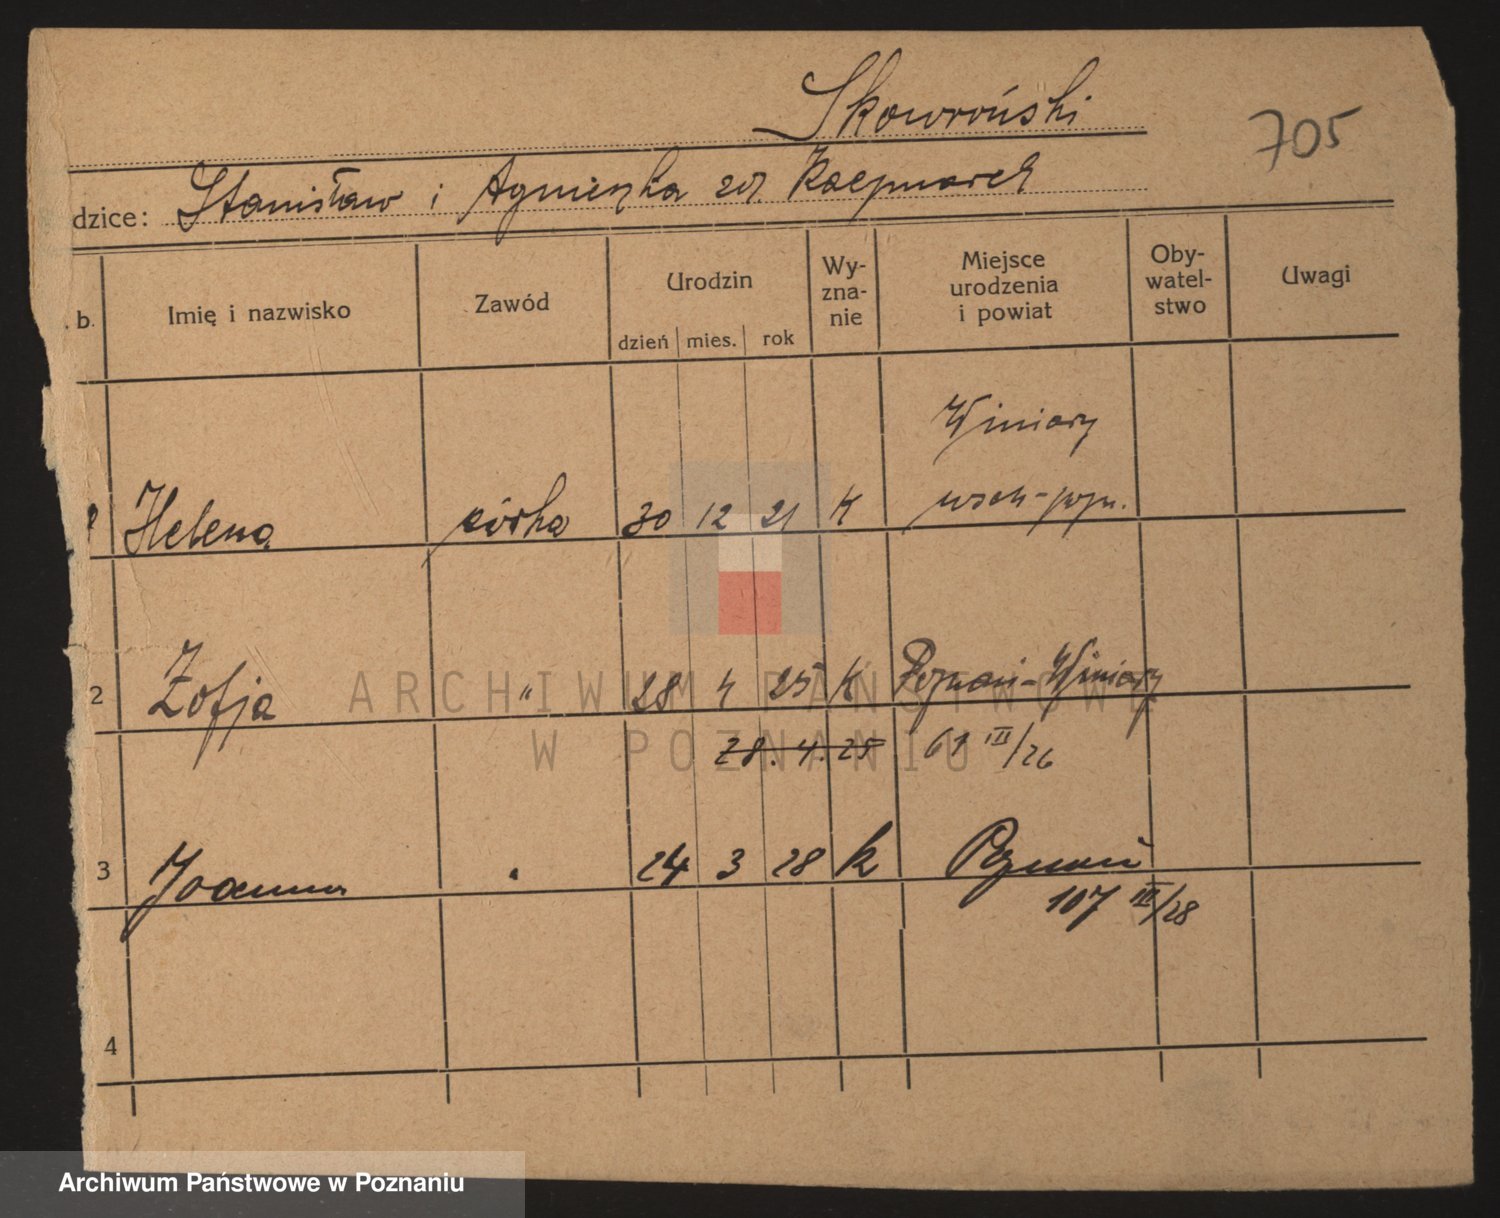 Skowroński
705
dzice: Stanisław i Agnieszka zd. Kaczmarek
b. Imię i nazwisko Zawód Urodzin Wy-zna-nie Miejsce urodzenia i powiat Oby-watel-stwo Uwagi
dzień mies. rok
Winiary
1 Helena córka 30 12 21 K wsch-pozn.
2 Zofja " 28 4 25 K Poznań-Winiary
28. 4. 25 61 III/26
3 Joanna " 24 3 28 k Poznań
107 III/28
4
ARCHIWUM PAŃSTWOWE
W POZNANIU
Archiwum Państwowe w Poznaniu